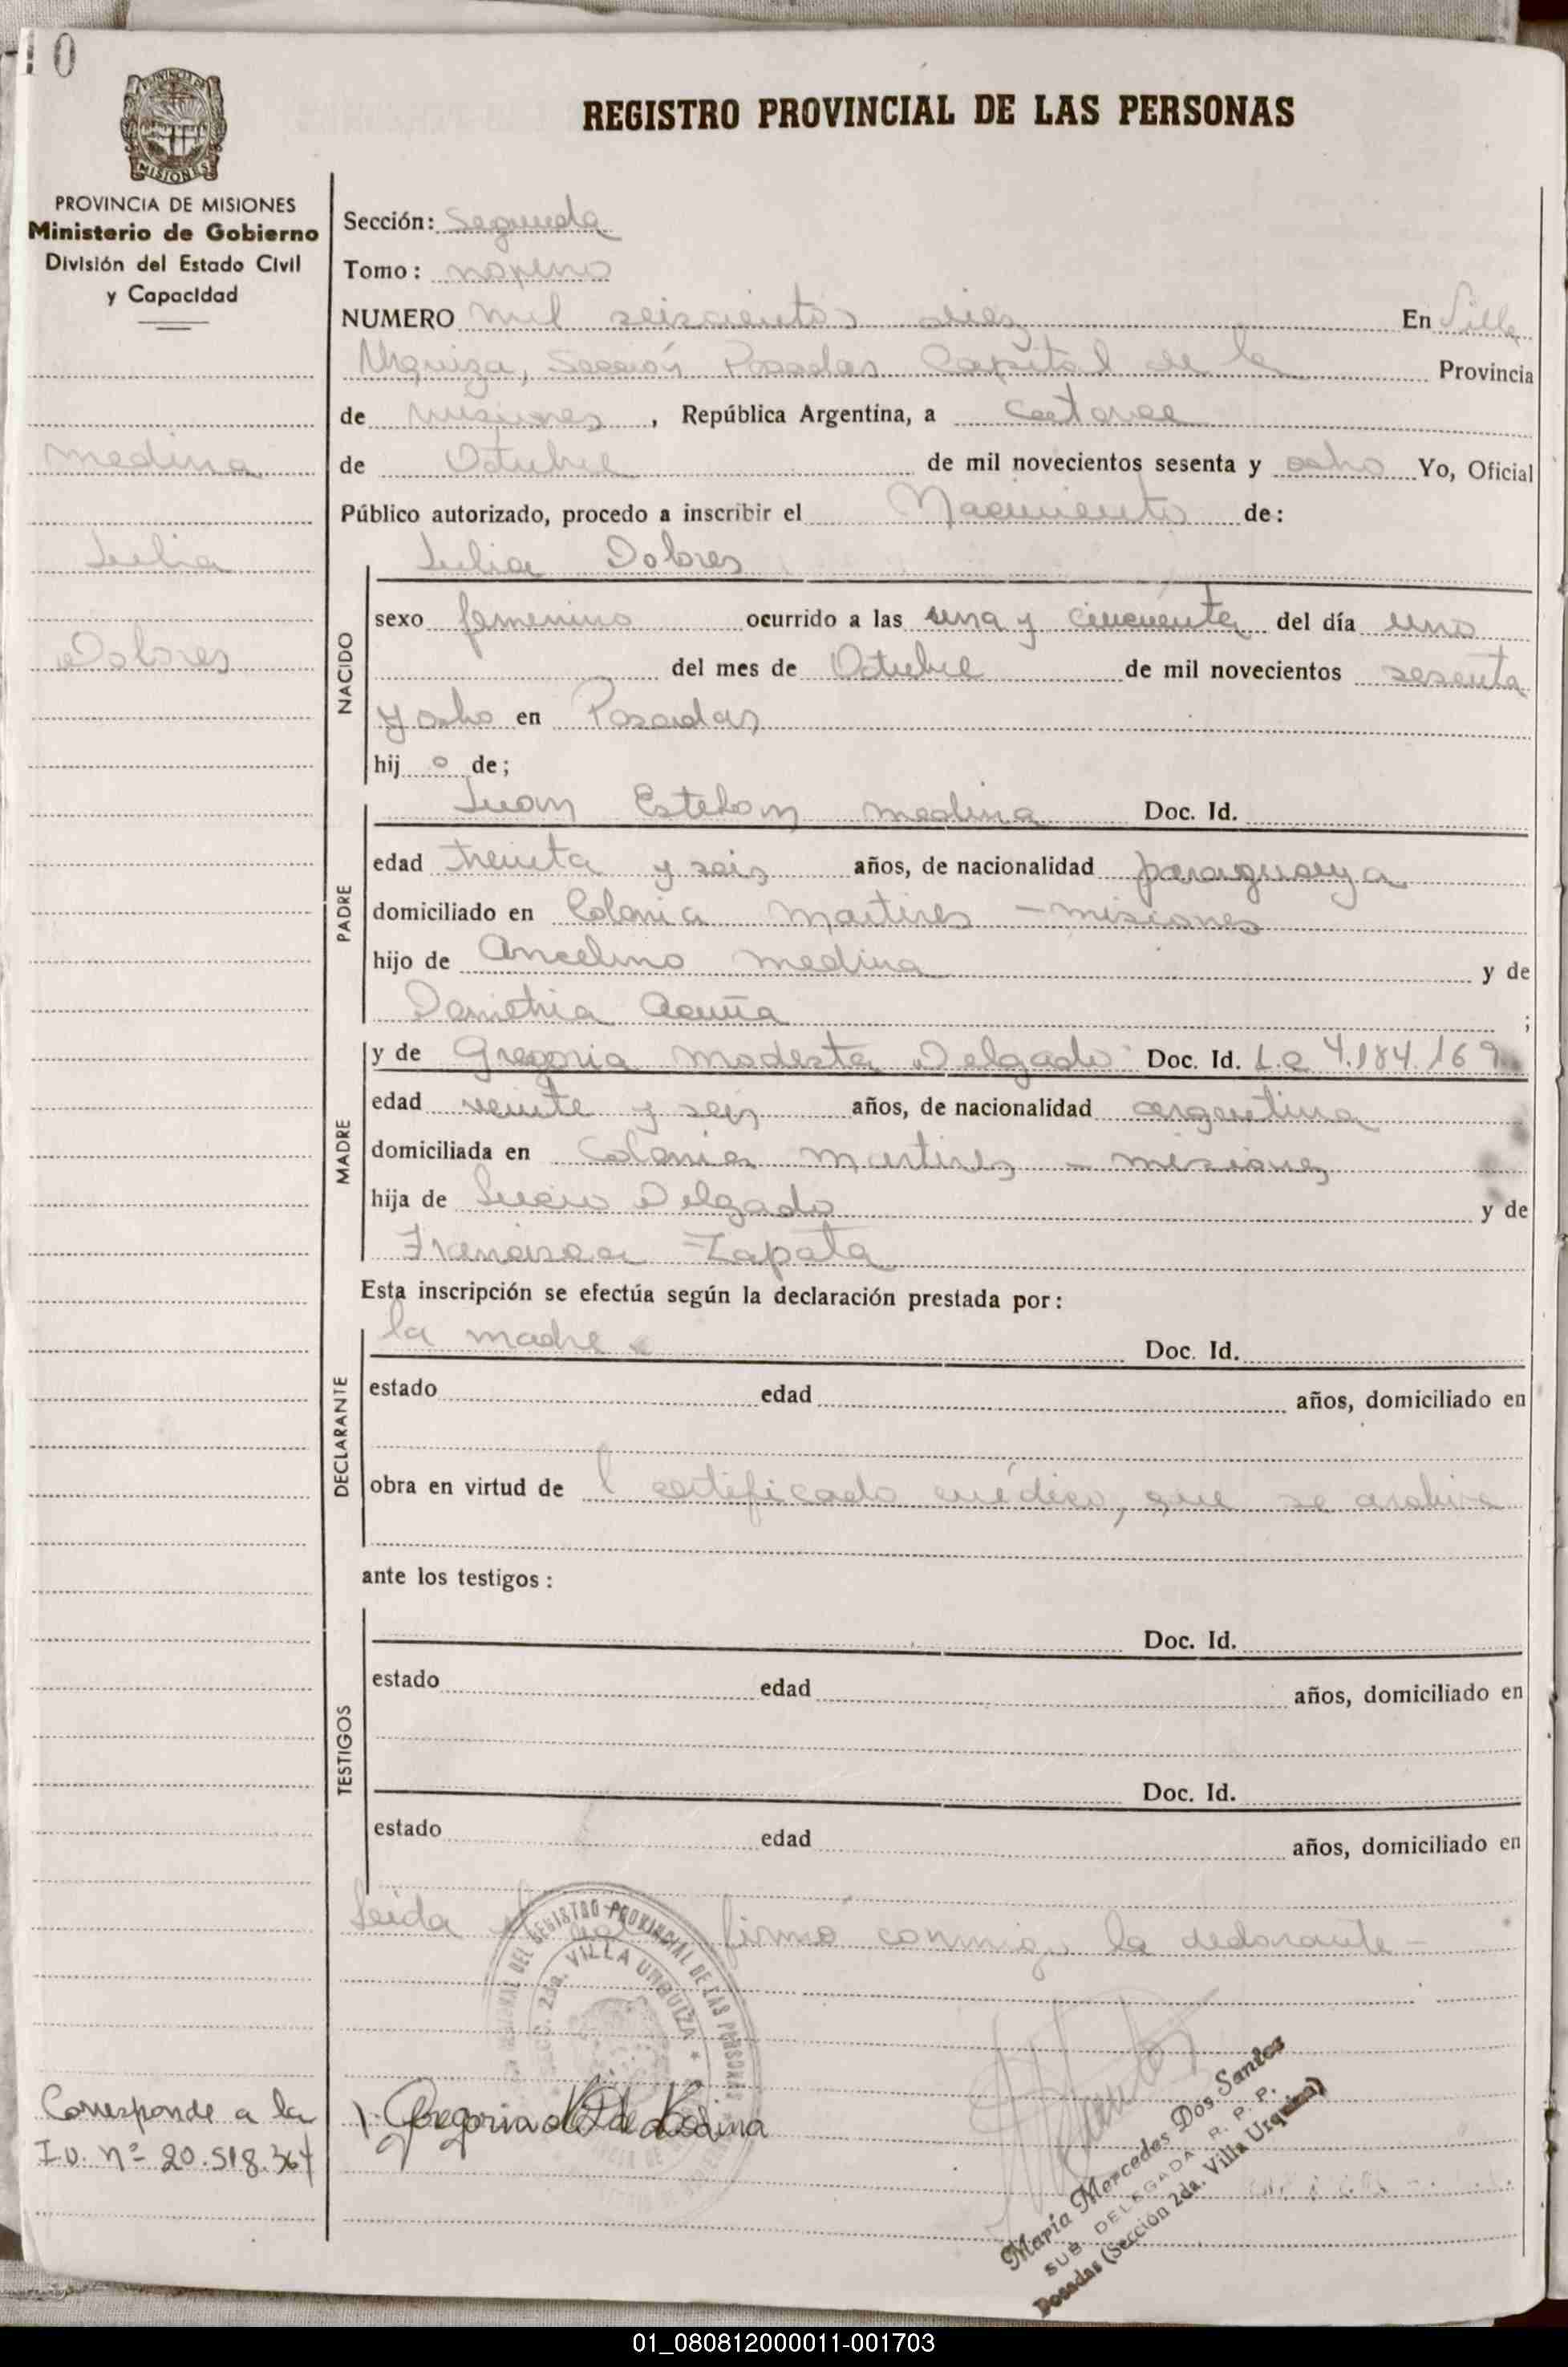 10
REGISTRO PROVINCIAL DE LAS PERSONAS
PROVINCIA DE MISIONES
Ministerio de Gobierno
División del Estado Civil
y Capacidad
Medina
Julia
Dolores
Corresponde a la
I.D. nº 20.518.364
Sección: Segunda
Tomo: noveno
NUMERO mil seiscientos diez En Villa
Urquiza, Sección Posadas Capital de la Provincia
de Misiones, República Argentina, a catorce
de Octubre de mil novecientos sesenta y ocho Yo, Oficial
Público autorizado, procedo a inscribir el Nacimiento de:
Julia Dolores
NACIDO
sexo femenino ocurrido a las una y cincuenta del día uno
del mes de Octubre de mil novecientos sesenta
y ocho en Posadas
hij o de;
PADRE
Juan Esteban Medina Doc. Id.
edad treinta y seis años, de nacionalidad paraguaya
domiciliado en Colonia Martires - Misiones
hijo de Ancelmo Medina y de
Acuña ;
MADRE
y de Gregoria Modesta Delgado Doc. Id. L.C 4.184.169
edad veinte y seis años, de nacionalidad argentina
domiciliada en Colonia Martires - Misiones
hija de Lucio Delgado y de
Francisca Zapata
Esta inscripción se efectúa según la declaración prestada por:
DECLARANTE
la madre Doc. Id.
estado edad años, domiciliado en
obra en virtud de l certificado médico, que se archiva
ante los testigos:
TESTIGOS
Doc. Id.
estado edad años, domiciliado en
Doc. Id.
estado edad años, domiciliado en
Leida firmó conmigo la declarante -
DEL REGISTRO PROVINCIAL DE LAS PERSONAS
SECC. 2da. VILLA URQUIZA
Gregoria de Medina
María Mercedes Dos Santos
SUB DELEGADA R. P. P.
Posadas (Sección 2da. Villa Urquiza)
01_080812000011-001703